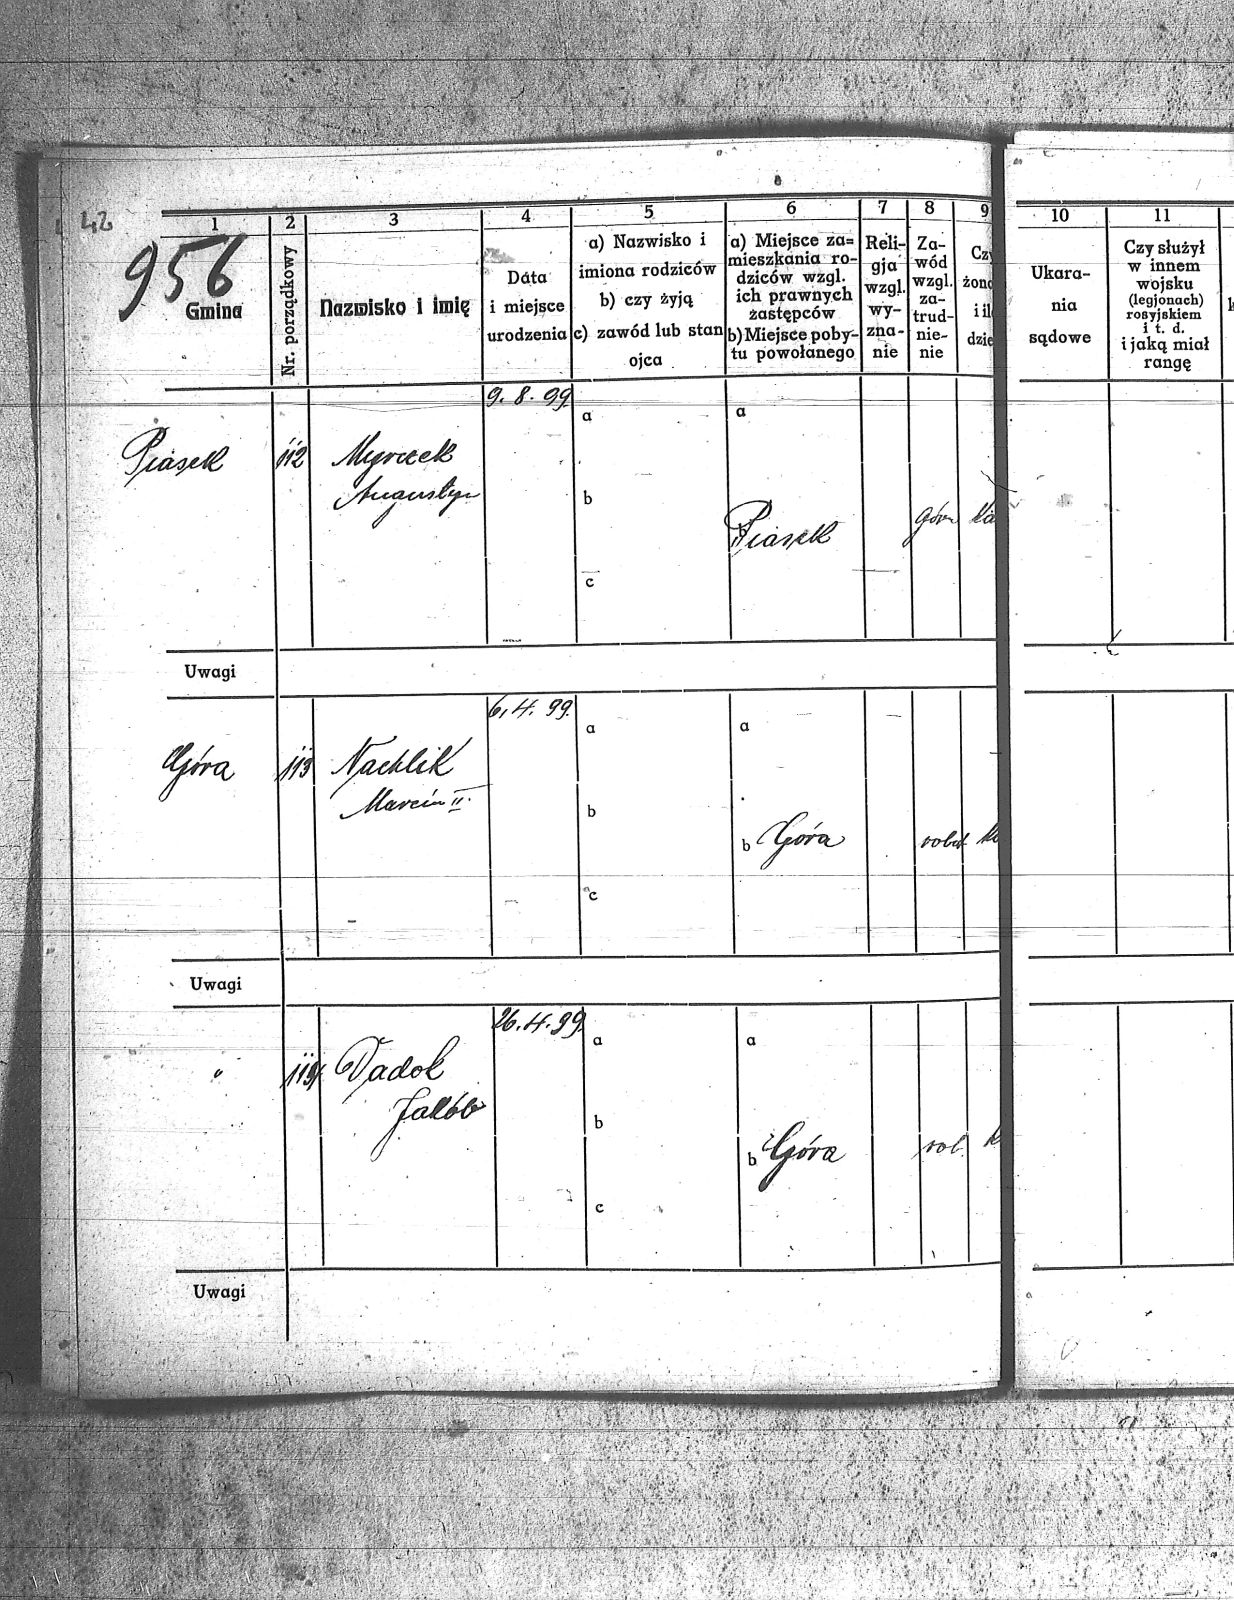 42
956
1
2
3
4
5
6
7
8
9
10
11
Gmina
Nr. porządkowy
Nazwisko i imię
Data
i miejsce
urodzenia
a) Nazwisko i
imiona rodziców
b) czy żyją
c) zawód lub stan
ojca
a) Miejsce za=
mieszkania ro-
dziców wzgl.
ich prawnych
zastępców
b) Miejsce poby-
tu powołanego
Reli-
gja
wzgl.
wy-
zna-
nie
Za-
wód
wzgl.
za-
trud-
nie-
nie
Cz
żona
i il
dzie
Ukara-
nia
sądowe
Czy służył
w innem
wojsku
(legjonach)
rosyjskiem
i t. d.
i jaką miał
rangę
9. 8. 99.
a
a
Piasek
112
Myrczek
Augustyn
b
b
Piasek
górn
ka
c
Uwagi
6. 4. 99.
a
a
Góra
113
Nachlik
Marcin II.
b
b Góra
robot
k
c
Uwagi
26. 4. 99.
a
a
"
114
Dadok
Jakób
b
b Góra
rob.
k
c
Uwagi